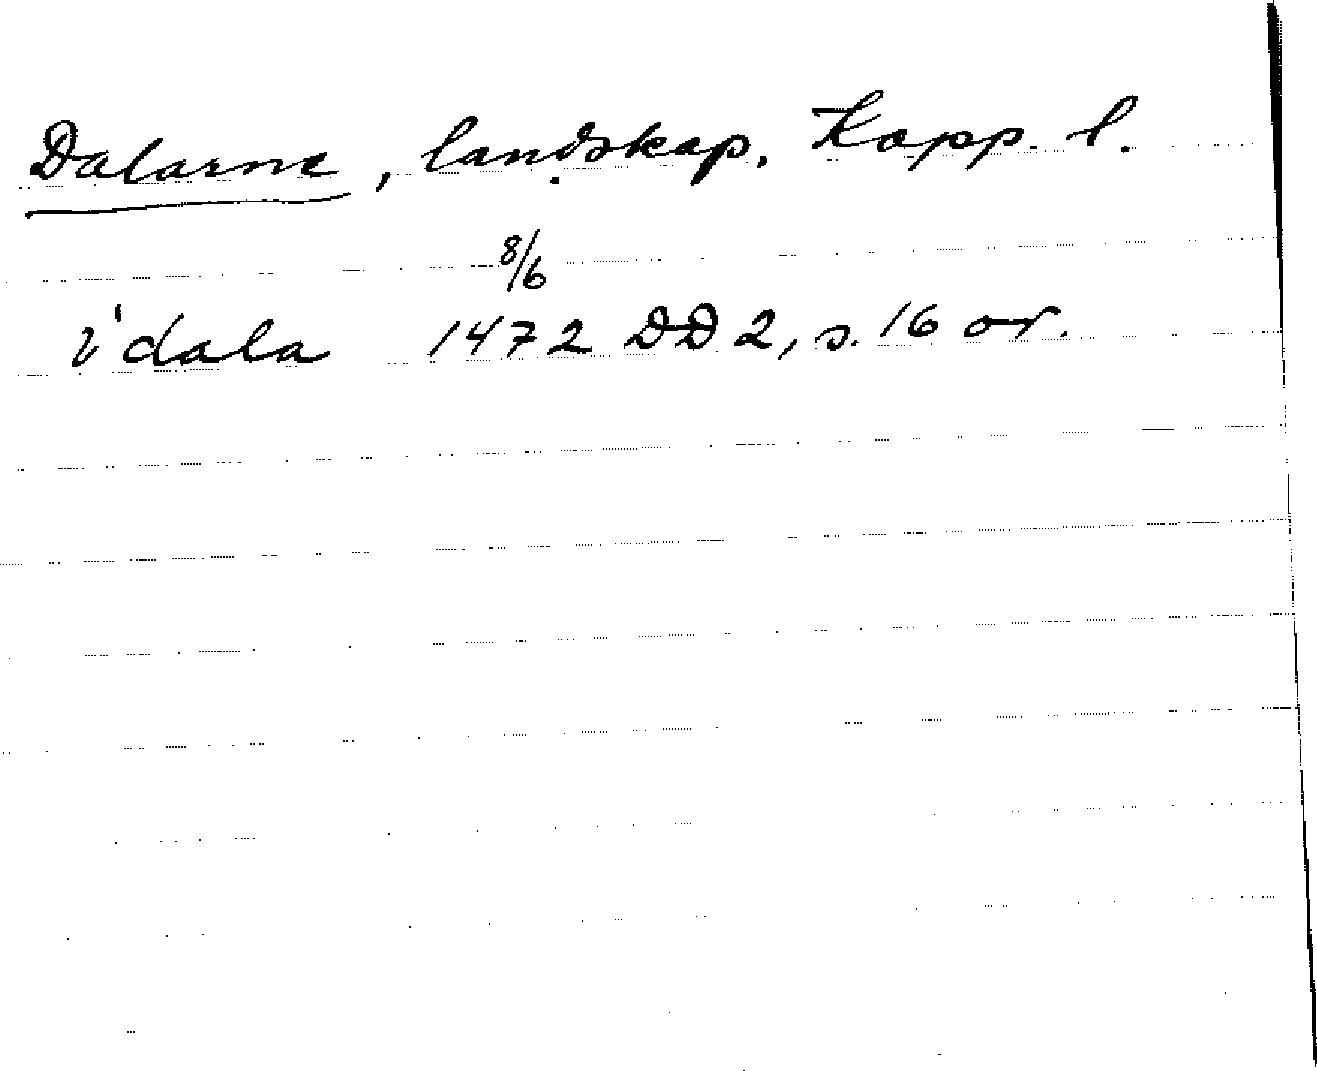 Dalarne, landskap. Kopp. l.
i dala 8/6 1472 DD 2, s. 16 or.